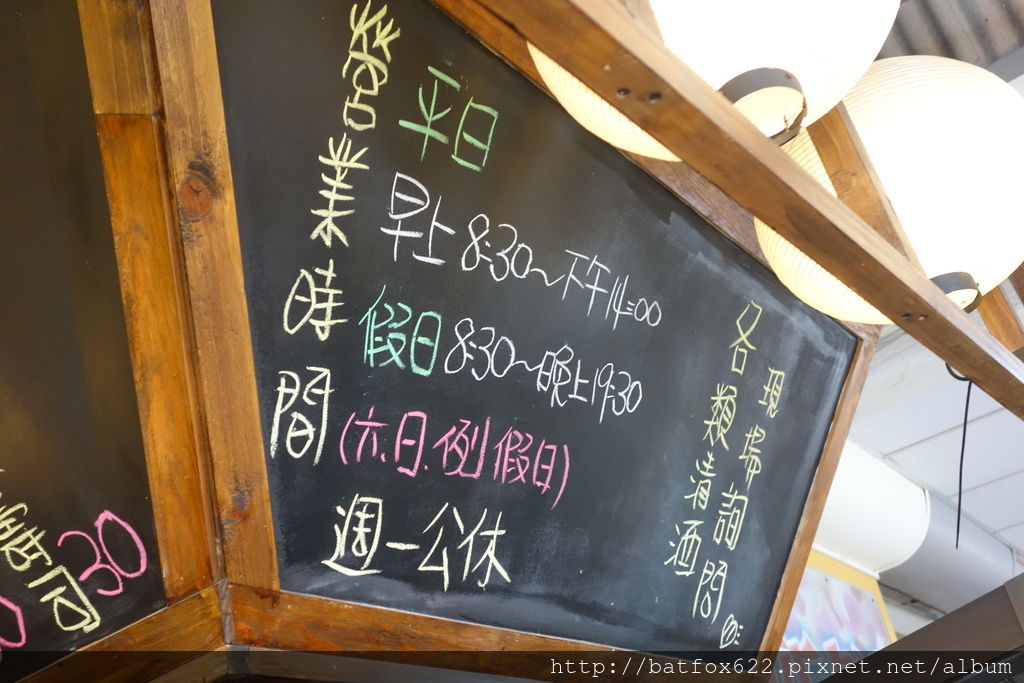 營業時間
平日
早上8:30~下午14:00
假日8:30~晚上19:30
(六.日.例假日)
週一公休
各類清酒
現場詢問
壽司
30
http://batfox622.pixnet.net/album